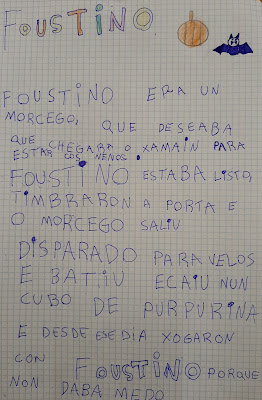 FOUSTINO.
FOUSTINO ERA UN
MORCEGO, QUE DESEABA
QUE CHEGARA O XAMAIN PARA
ESTAR COS NENOS.
FOUSTINO ESTABA LISTO,
TIMBRARON A PORTA E
O MORCEGO SALIU
DISPARADO PARA VELOS
E BATIU E CAIU NUN
CUBO DE PURPURINA
E DESDE ESE DIA XOGARON
CON FOUSTINO PORQUE
NON DABA MEDO